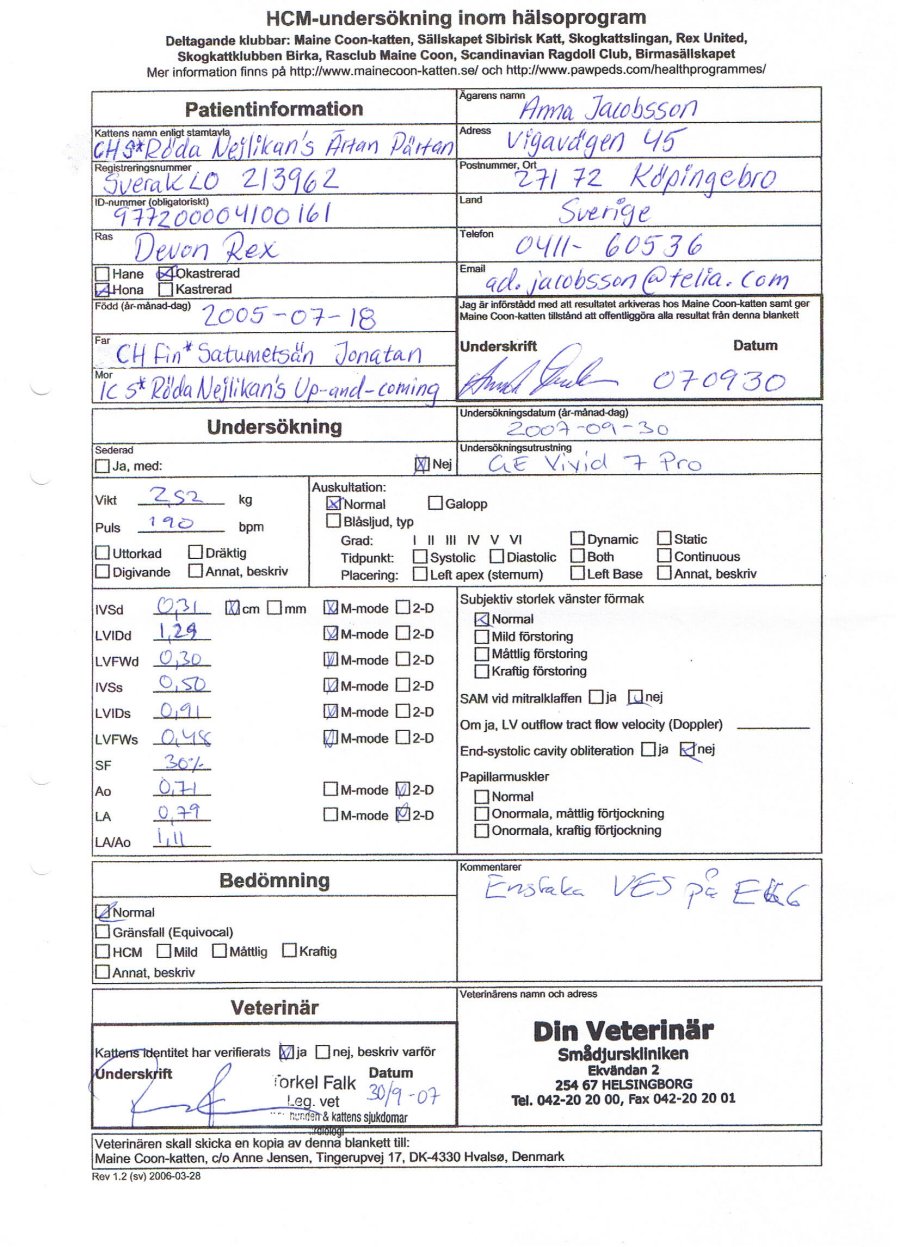 HCM-undersökning inom hälsoprogram
Deltagande klubbar: Maine Coon-katten, Sällskapet Sibirisk Katt, Skogkattslingan, Rex United,
Skogkattklubben Birka, Rasclub Maine Coon, Scandinavian Ragdoll Club, Birmasällskapet
Mer information finns på http://www.mainecoon-katten.se/ och http://www.pawpeds.com/healthprogrammes/
Patientinformation
Kattens namn enligt stamtavla
CH S* Röda Nejlikan's Ärtan Pärtan
Registreringsnummer
Sverak LO 213962
ID-nummer (obligatoriskt)
977200004100161
Ras
Devon Rex
Hane Okastrerad
Hona Kastrerad
Född (år-månad-dag) 2005-07-18
Far
CH Fin* Satumetsän Jonatan
Mor
IC S* Röda Nejlikan's Up-and-coming
Ägarens namn
Anna Jacobsson
Adress
Vigavägen 45
Postnummer, Ort
271 72 Köpingebro
Land
Sverige
Telefon
0411- 60536
Email
ad.jacobsson@telia.com
Jag är införstådd med att resultatet arkiveras hos Maine Coon-katten samt ger
Maine Coon-katten tillstånd att offentliggöra alla resultat från denna blankett
Underskrift Datum
070930
Undersökning
Undersökningsdatum (år-månad-dag)
2007-09-30
Sederad
Ja, med: Nej
Undersökningsutrustning
GE Vivid 7 Pro
Vikt 2,52 kg
Puls 190 bpm
Uttorkad Dräktig
Digivande Annat, beskriv
Auskultation:
Normal Galopp
Blåsljud, typ
Grad: I II III IV V VI Dynamic Static
Tidpunkt: Systolic Diastolic Both Continuous
Placering: Left apex (sternum) Left Base Annat, beskriv
IVSd 0,31 cm mm M-mode 2-D
LVIDd 1,29 M-mode 2-D
LVFWd 0,30 M-mode 2-D
IVSs 0,50 M-mode 2-D
LVIDs 0,91 M-mode 2-D
LVFWs 0,48 M-mode 2-D
SF 30%
Ao 0,71 M-mode 2-D
LA 0,79 M-mode 2-D
LA/Ao 1,11
Subjektiv storlek vänster förmak
Normal
Mild förstoring
Måttlig förstoring
Kraftig förstoring
SAM vid mitralklaffen ja nej
Om ja, LV outflow tract flow velocity (Doppler)
End-systolic cavity obliteration ja nej
Papillarmuskler
Normal
Onormala, måttlig förtjockning
Onormala, kraftig förtjockning
Bedömning
Normal
Gränsfall (Equivocal)
HCM Mild Måttlig Kraftig
Annat, beskriv
Kommentarer
Enstaka VES på
Veterinär
Kattens identitet har verifierats ja nej, beskriv varför
Underskrift Datum
Torkel Falk 30/9 -07
Leg. vet
hunden & kattens sjukdomar
Veterinärens namn och adress
Din Veterinär
Smådjurskliniken
Ekvändan 2
254 67 HELSINGBORG
Tel. 042-20 20 00, Fax 042-20 20 01
Veterinären skall skicka en kopia av denna blankett till:
Maine Coon-katten, c/o Anne Jensen, Tingerupvej 17, DK-4330 Hvalsø, Denmark
Rev 1.2 (sv) 2006-03-28